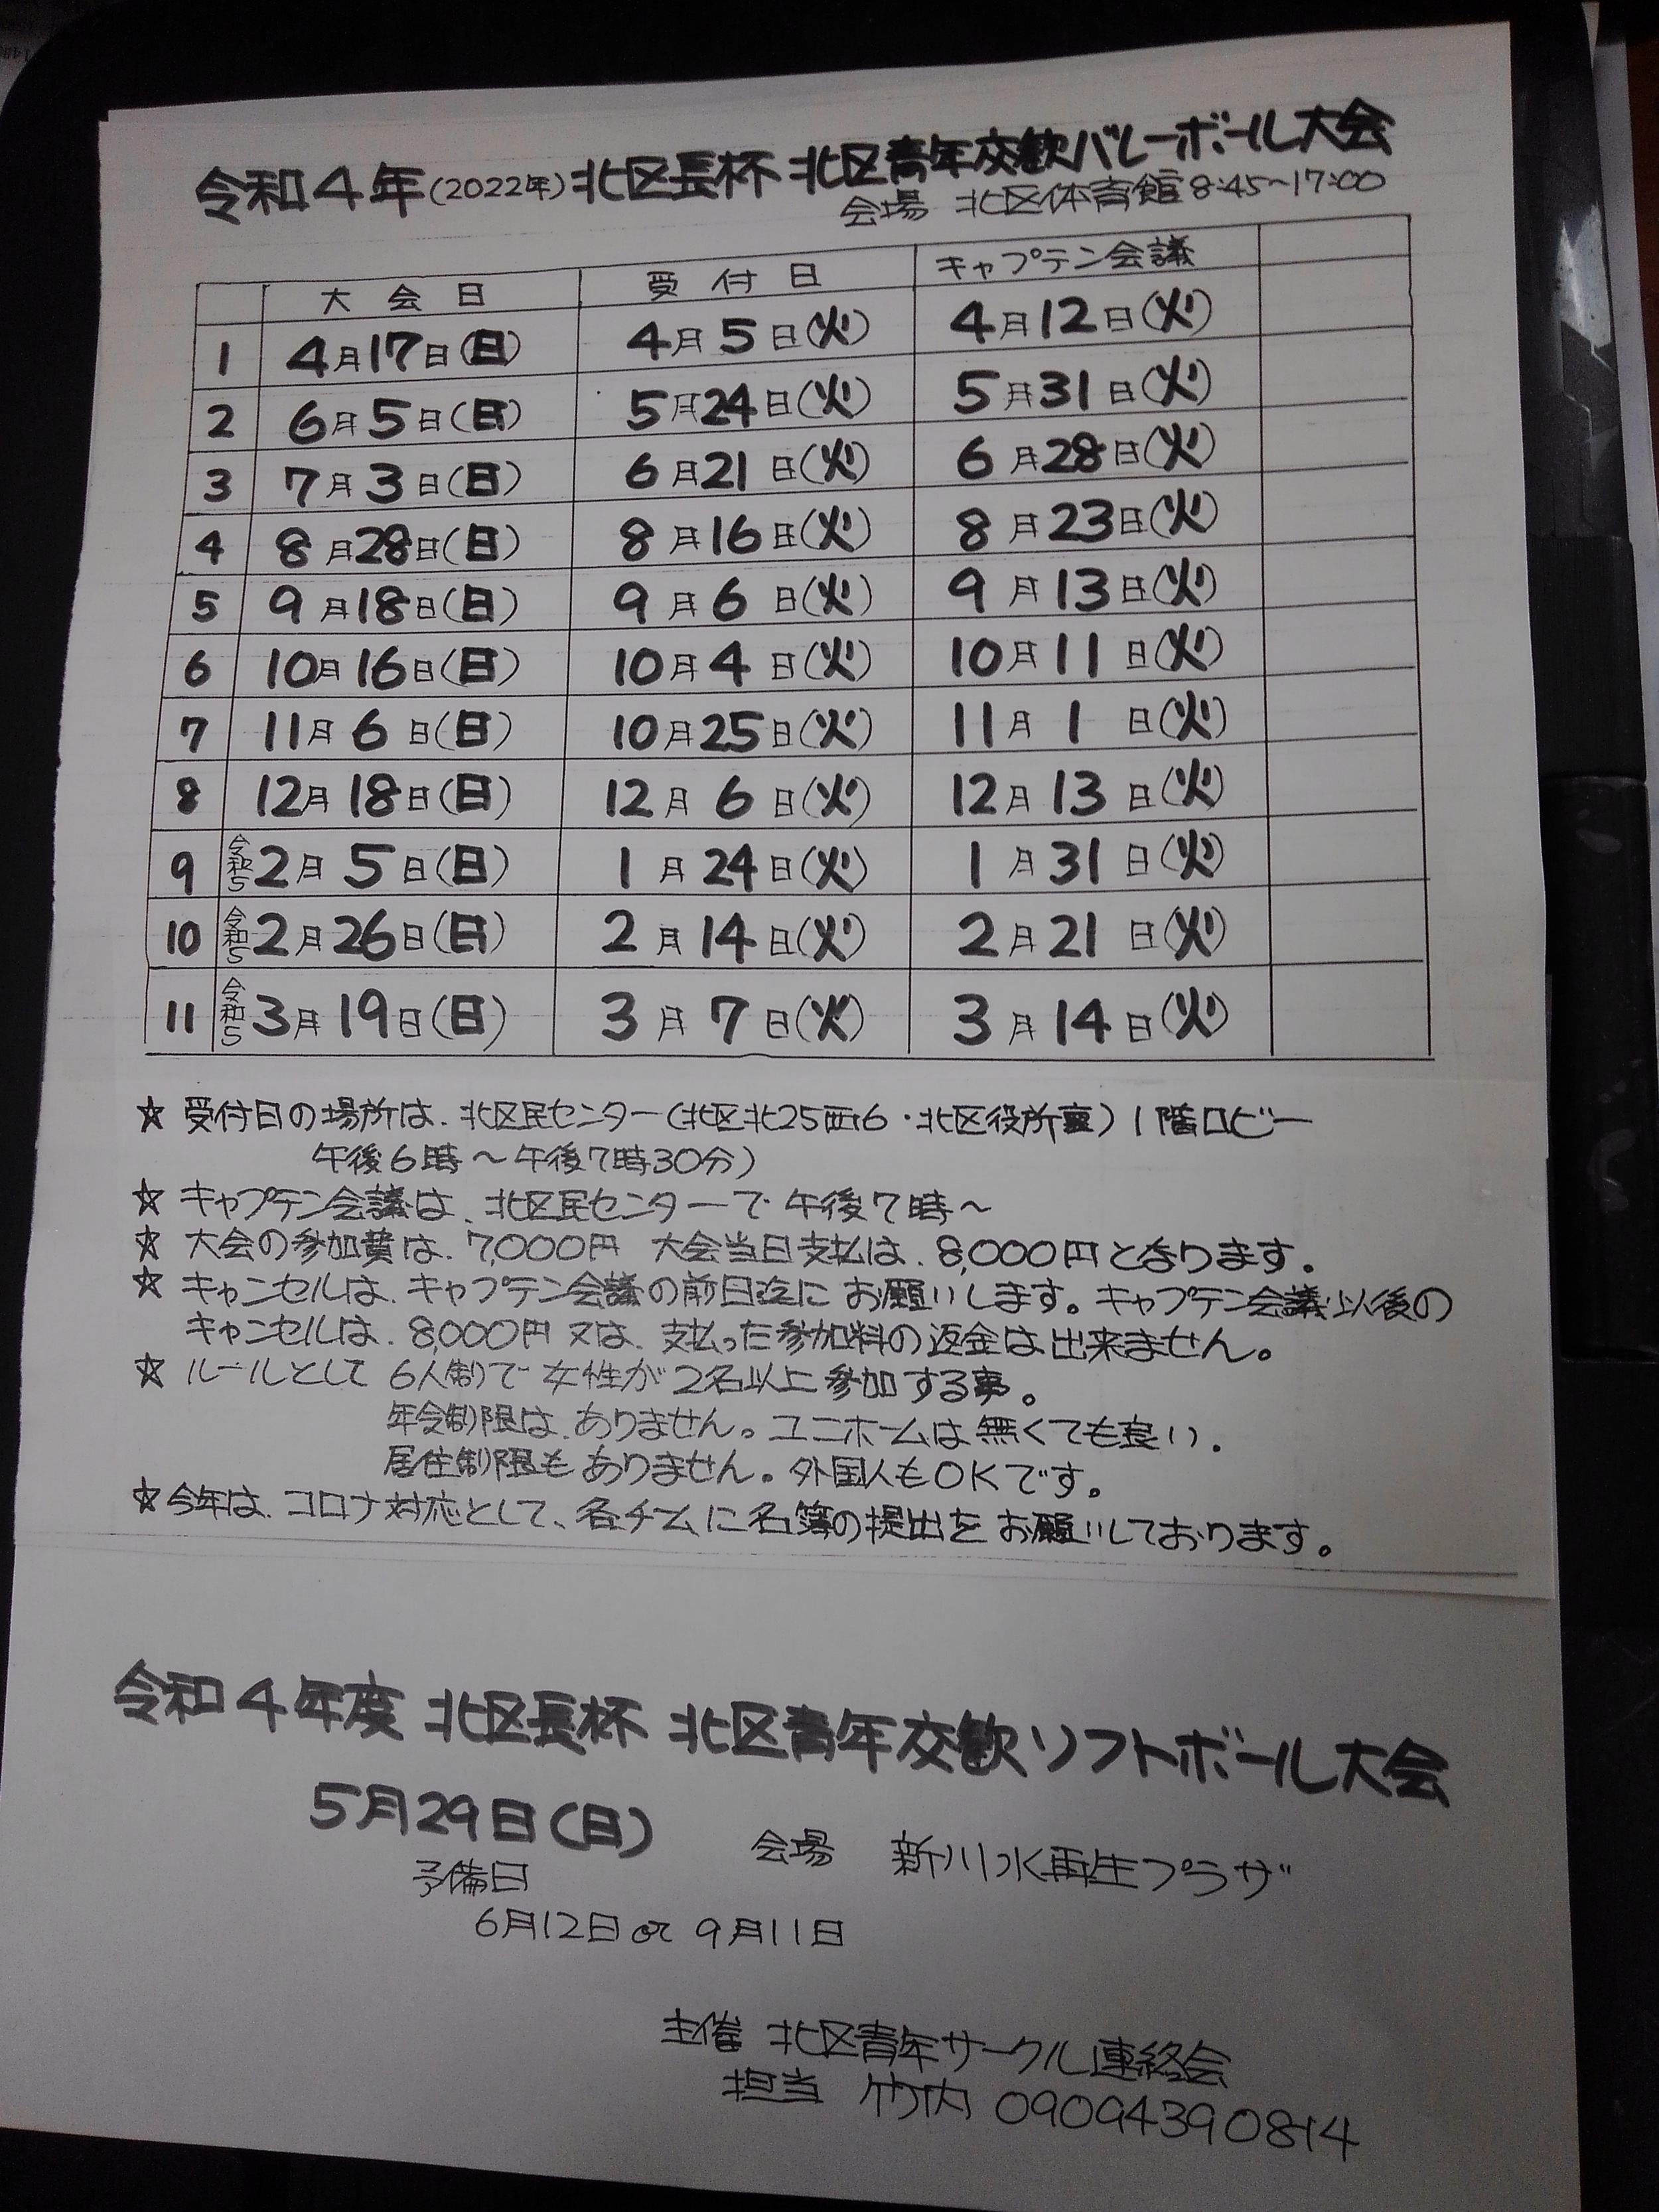 令和4年(2022年)北区長杯 北区青年交歓バレーボール大会
会場 北区体育館 8:45~17:00
大会日 受付日 キャプテン会議
1 4月17日(日) 4月5日(火) 4月12日(火)
2 6月5日(日) 5月24日(火) 5月31日(火)
3 7月3日(日) 6月21日(火) 6月28日(火)
4 8月28日(日) 8月16日(火) 8月23日(火)
5 9月18日(日) 9月6日(火) 9月13日(火)
6 10月16日(日) 10月4日(火) 10月11日(火)
7 11月6日(日) 10月25日(火) 11月1日(火)
8 12月18日(日) 12月6日(火) 12月13日(火)
9 令和5 2月5日(日) 1月24日(火) 1月31日(火)
10 令和5 2月26日(日) 2月14日(火) 2月21日(火)
11 令和5 3月19日(日) 3月7日(火) 3月14日(火)
☆ 受付日の場所は、北区民センター(北区北25西6・北区役所裏)1階ロビー
午後6時~午後7時30分)
☆ キャプテン会議は、北区民センターで 午後7時~
☆ 大会の参加費は、7,000円 大会当日支払は、8,000円となります。
☆ キャンセルは、キャプテン会議の前日迄に お願いします。キャプテン会議以後の
キャンセルは、8,000円 又は、支払った参加料の返金は出来ません。
☆ ルールとして 6人制で 女性が2名以上参加する事。
年令制限は、ありません。ユニホームは無くても良い。
居住制限も ありません。外国人もOKです。
☆今年は、コロナ対応として、各チームに名簿の提出をお願いしております。
令和4年度 北区長杯 北区青年交歓ソフトボール大会
5月29日(日) 会場 新川水再生プラザ
予備日
6月12日 or 9月11日
主催 北区青年サークル連絡会
担当 竹内 09094390814